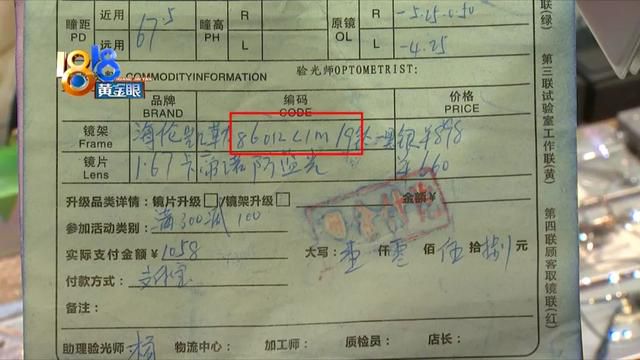 瞳距 PD 近用 67.5 瞳高 PH R 原镜 OL R -5.25-0.50
远用 67 L L -4.25
1818黄金眼
COMMODITYINFORMATION 验光师OPTOMETRIST:
品牌 BRAND 编码 CODE 价格 PRICE
镜架 Frame 海伦凯勒 86012 C1M 19 银 ¥898
镜片 Lens 1.67 防蓝光 ¥660
升级品类详情: 镜片升级□/镜架升级□ 金额¥
参加活动类别: 满300减100
实际支付金额¥1058 大写: 壹 仟 零 佰 伍 拾 捌 元
付款方式: 支付宝
备注:
助理验光师 杨 物流中心: 加工师: 质检员: 店长:
第三联试验室工作联(黄)
第四联顾客取镜联(红)